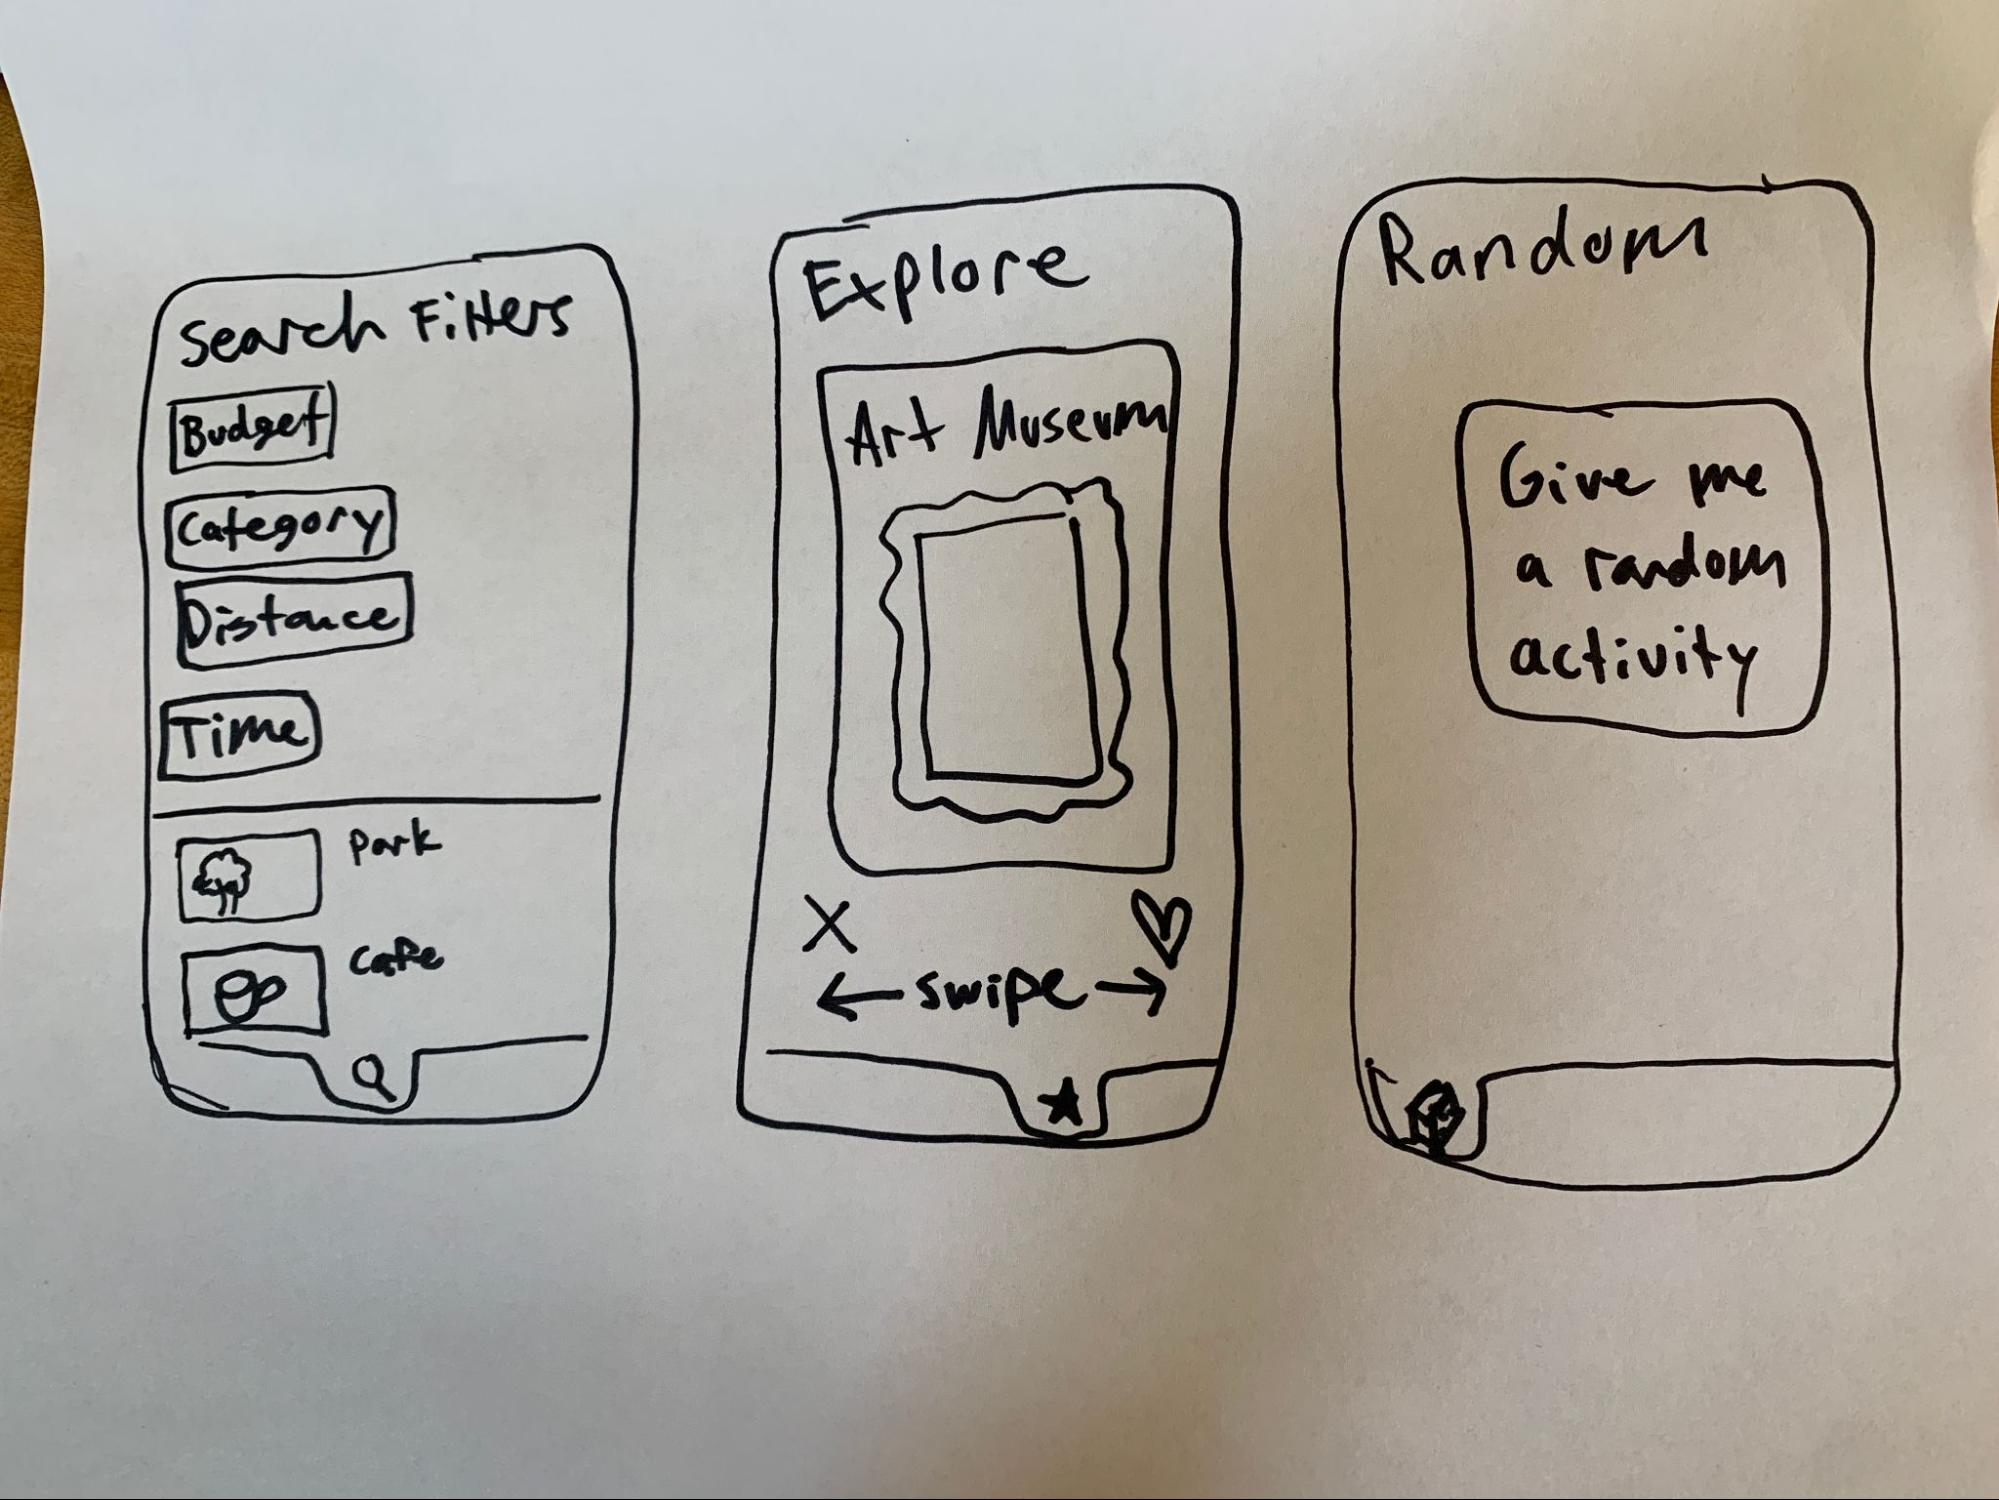 Search Filters
Budget
Category
Distance
Time
Park
Cafe
Explore
Art Museum
X
swipe
Random
Give me
a random
activity